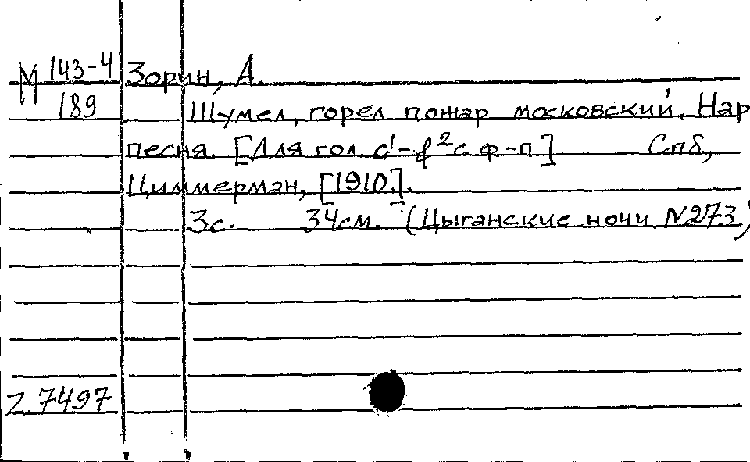 М 143-4 Зорин, А.
189 Шумел, горел пожар московский. Нар
песня. [Для гол. c¹-f² с ф-п] Спб,
Циммерман, [1910].
3с. 34см. (Цыганские ночи №273)
Z 7497